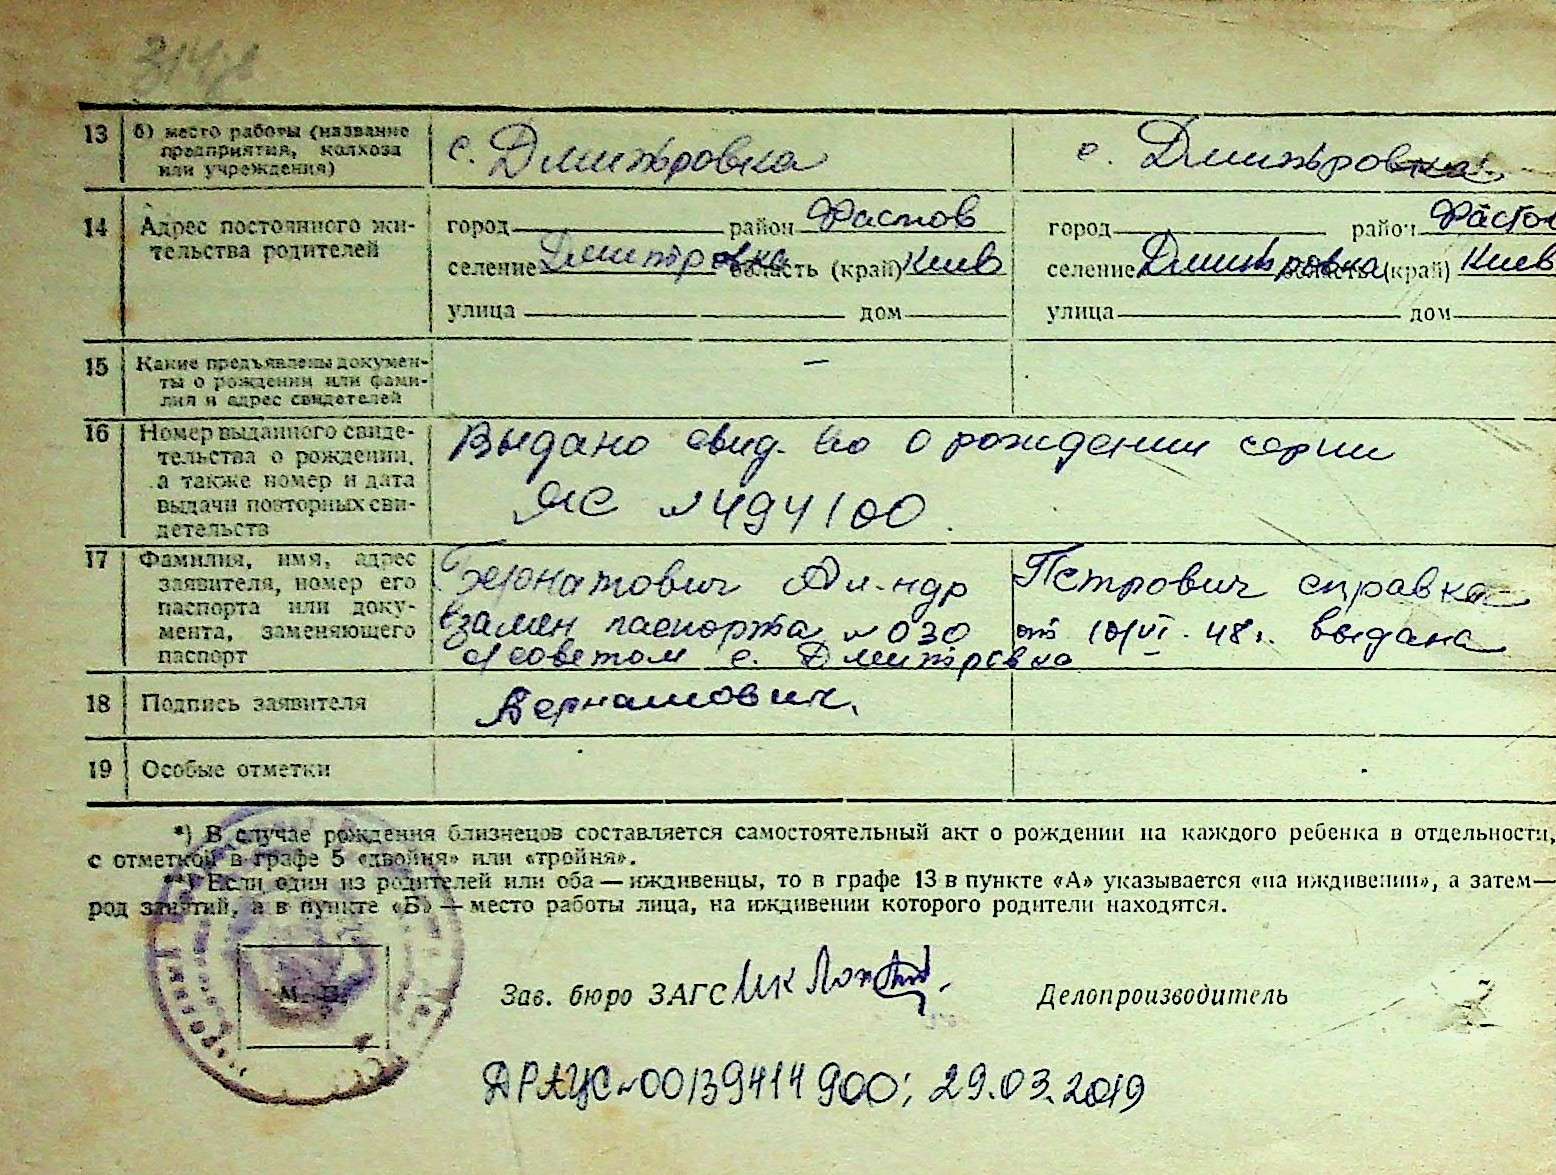 314
13 б) место работы (название предприятия, колхоза или учреждения) с. Дмитровка с. Дмитровка
14 Адрес постоянного жительства родителей
город район Фастов город район Фастов
селение Дмитровка область (край) Киев селение Дмитровка область (край) Киев
улица дом улица дом
15 Какие предъявлены документы о рождении или фамилия и адрес свидетелей —
16 Номер выданного свидетельства о рождении, а также номер и дата выдачи повторных свидетельств
Выдано свид-во о рождении серии
ЯС № 494100.
17 Фамилия, имя, адрес заявителя, номер его паспорта или документа, заменяющего паспорт
Бернатович Ал-ндр Петрович справка
взамен паспорта № 030 от 10/VI-48г. выдана
с/советом с. Дмитровка
18 Подпись заявителя Бернатович.
19 Особые отметки
*) В случае рождения близнецов составляется самостоятельный акт о рождении на каждого ребенка в отдельности,
с отметкой в графе 5 «двойня» или «тройня».
**) Если один из родителей или оба — иждивенцы, то в графе 13 в пункте «А» указывается «на иждивении», а затем —
род занятий, а в пункте «Б» — место работы лица, на иждивении которого родители находятся.
М. П.
Зав. бюро ЗАГС Делопроизводитель
ДРАЦС №00139414900; 29.03.2019